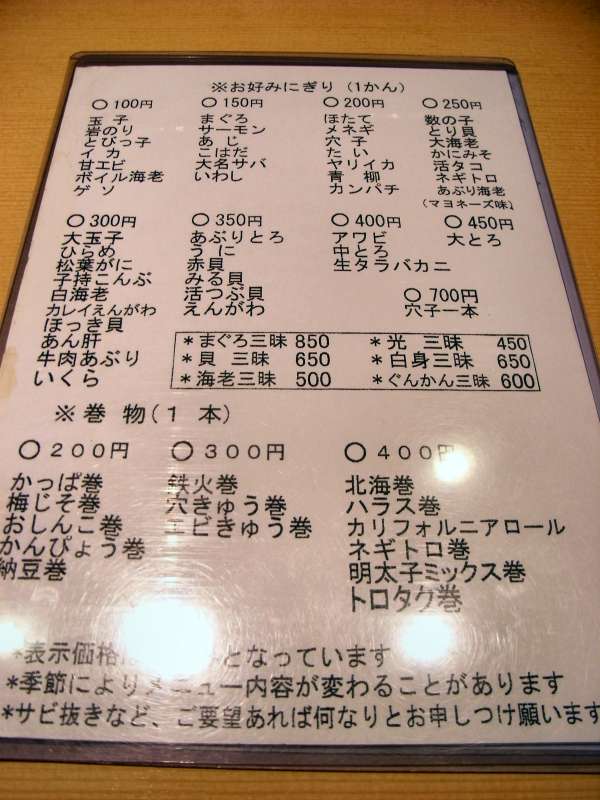 ※お好みにぎり(1かん)
○100円 ○150円 ○200円 ○250円
玉子 まぐろ ほたて 数の子
岩のり サーモン メネギ とり貝
とびっ子 あじ 穴子 大海老
イカ こはだ たい かにみそ
甘エビ 大名サバ ヤリイカ 活タコ
ボイル海老 いわし 青柳 ネギトロ
ゲソ カンパチ あぶり海老
(マヨネーズ味)
○300円 ○350円 ○400円 ○450円
大玉子 あぶりとろ アワビ 大とろ
ひらめ うに 中とろ
松葉がに 赤貝 生タラバカニ
子持こんぶ みる貝
白海老 活つぶ貝 ○700円
カレイえんがわ えんがわ 穴子一本
ほっき貝
あん肝 *まぐろ三昧 850 *光三昧 450
牛肉あぶり *貝三昧 650 *白身三昧 650
いくら *海老三昧 500 *ぐんかん三昧 600
※巻物(1本)
○200円 ○300円 ○400円
かっぱ巻 鉄火巻 北海巻
梅じそ巻 穴きゅう巻 ハラス巻
おしんこ巻 エビきゅう巻 カリフォルニアロール
かんぴょう巻 ネギトロ巻
納豆巻 明太子ミックス巻
トロタク巻
*表示価格は となっています
*季節によりメニュー内容が変わることがあります
*サビ抜きなど、ご要望あれば何なりとお申しつけ願います